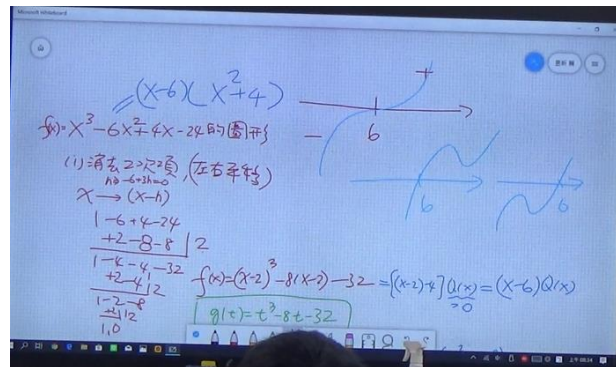 Microsoft Whiteboard
=(x-6)(x²+4)
f(x)=x³-6x²+4x-24的圖形
(i)消去2次項,(左右平移)
-6+3h=0
x→(x-h)
1-6+4-24
+2-8-8 | 2
1-4-4-32
+2-4 | 2
1-2-8
+2 | 2
1,0
f(x)=(x-2)³-8(x-2)-32=[(x-2)-4]Q(x)=(x-6)Q(x)
>0
g(t)=t³-8t-32
+
-
6
6
6